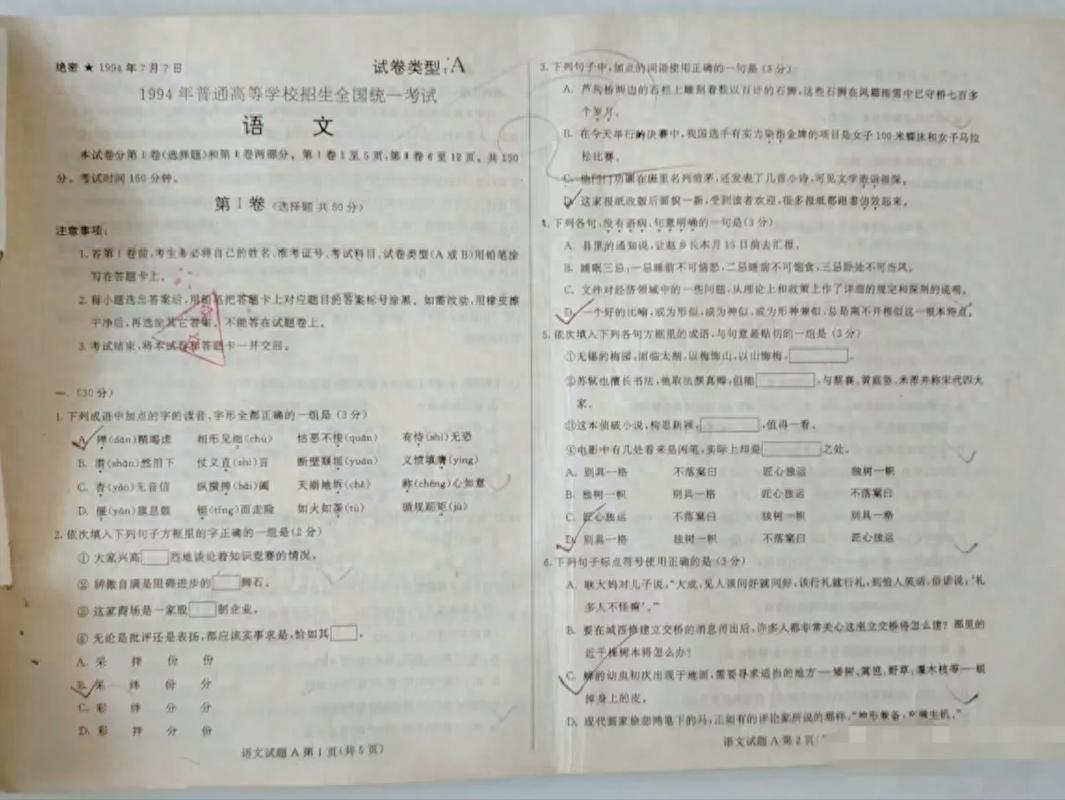 绝密 ★ 1994年7月7日
试卷类型:A
1994年普通高等学校招生全国统一考试
语 文
本试卷分第Ⅰ卷(选择题)和第Ⅱ卷两部分。第Ⅰ卷1至5页,第Ⅱ卷6至12页。共150
分。考试时间150分钟。
第Ⅰ卷(选择题 共50分)
注意事项:
1.答第Ⅰ卷前,考生务必将自己的姓名、准考证号、考试科目、试卷类型(A或B)用铅笔涂
写在答题卡上。
2.每小题选出答案后,用铅笔把答题卡上对应题目的答案标号涂黑。如需改动,用橡皮擦
干净后,再选涂其它答案。不能答在试题卷上。
3.考试结束,将本试卷和答题卡一并交回。
一、(30分)
1.下列成语中加点的字的读音、字形全都正确的一组是(3分)
A. 殚(dān)精竭虑 相形见绌(chù) 怙恶不悛(quān) 有恃(shì)无恐
B. 潸(shān)然泪下 仗义直(zhí)言 断壁颓垣(yuán) 义愤填膺(yīng)
C. 杳(yǎo)无音信 纵横捭(bǎi)阖 天崩地坼(chè) 称(chèng)心如意
D. (yǎn)旗息鼓 (tǐng)而走险 如火如荼(tú) 循规蹈矩(jǔ)
2.依次填入下列句子方框里的字正确的一组是(2分)
① 大家兴高□烈地谈论着知识竞赛的情况。
② 骄傲自满是阻碍进步的□脚石。
③ 这家商场是一家股□制企业。
④ 无论是批评还是表扬,都应该实事求是,恰如其□。
A. 采 拌 份 份
B. 采 绊 份 分
C. 彩 绊 分 分
D. 彩 拌 分 份
语文试题A第1页(共5页)
3.下列句子中,加点的词语使用正确的一句是(3分)
A. 芦沟桥两边的石栏上雕刻着数以百计的石狮,这些石狮在风霜雨雪中已守桥七百多
个岁月。
B. 在今天举行的决赛中,我国选手有实力染指金牌的项目是女子100米蝶泳和女子马拉
松比赛。
C. 他门门功课在班里名列前茅,还发表了几首小诗,可见文学造诣很深。
D. 这家报纸改版后面貌一新,受到读者欢迎,很多报纸都跟着仿效起来。
4.下列各句,没有语病、句意明确的一句是(3分)
A. 县里的通知说,让赵乡长本月15日前去汇报。
B. 睡眠三忌:一忌睡前不可恼怒,二忌睡前不可饱食,三忌卧处不可当风。
C. 文件对经济领域中的一些问题,从理论上和政策上作了详细的规定和深刻的说明。
D. 一个好的比喻,或为形似,或为神似,或为形神兼似,总是离不开相似这一根本特点。
5.依次填入下列各句方框里的成语,与句意最贴切的一组是(3分)
①无锡的梅园,面临太湖,以梅饰山,以山饰梅,□。
②苏轼也擅长书法,他取法颜真卿,但能□,与蔡襄、黄庭坚、米芾并称宋代四大
家。
③这本侦破小说,构思新颖,□,值得一看。
④电影中有几处看来是闲笔,实际上却是□之处。
A. 别具一格 不落窠臼 匠心独运 独树一帜
B. 独树一帜 别具一格 匠心独运 不落窠臼
C. 匠心独运 不落窠臼 独树一帜 别具一格
D. 别具一格 独树一帜 不落窠臼 匠心独运
6.下列句子标点符号使用正确的是(3分)
A. 耿大妈对儿子说,“大成,见人该问好就问好,该行礼就行礼,别怕人笑话,俗语说,‘礼
多人不怪嘛’。”
B. 要在城西修建立交桥的消息传出后,许多人都非常关心这座立交桥将怎么建?那里的
近千棵树木将怎么办?
C. 蝉的幼虫初次出现于地面,需要寻求适当的地方——矮树、篱笆、野草、灌木枝等——蜕
掉身上的皮。
D. 现代画家徐悲鸿笔下的马,正如有的评论家所说的那样,“神形兼备,充满生机。”
语文试题A第2页(